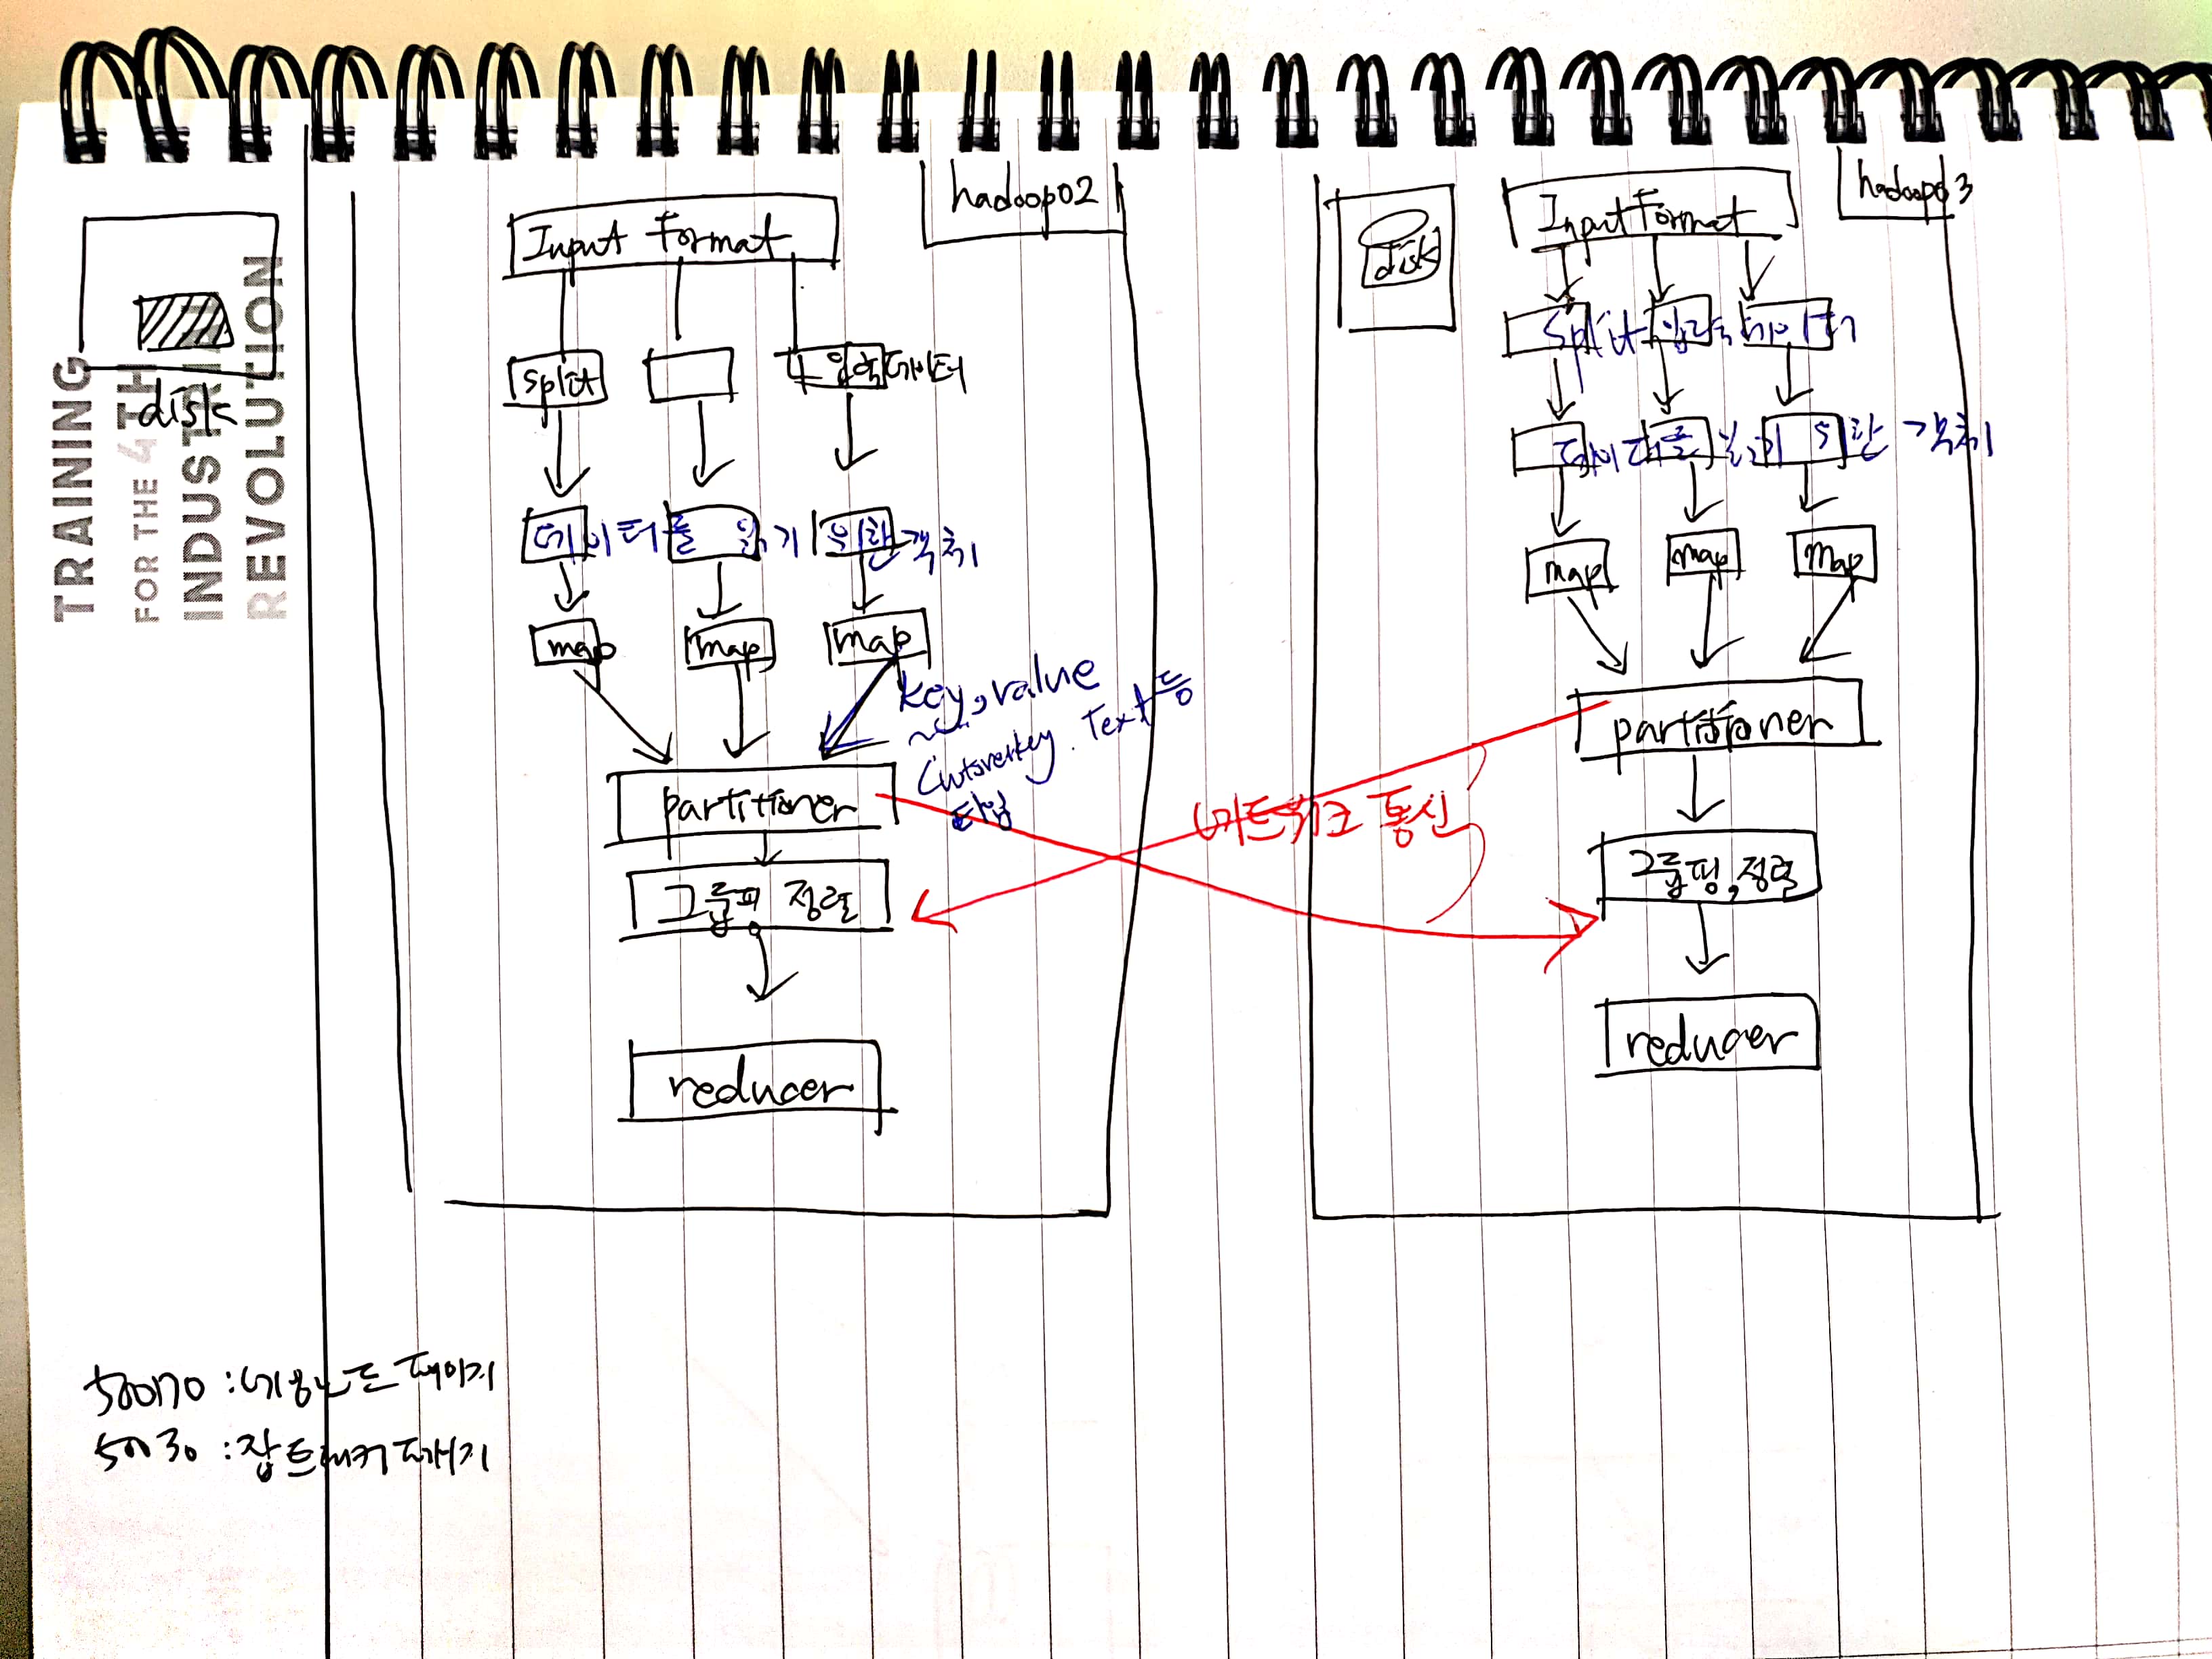 TRAINING
FOR THE 4TH
INDUSTRI
REVOLUTION
disk
hadoop02
Input Format
split
입력데이터
데이터를 읽기 위한 객체
map
map
map
key, value
Text 등
타입
partitioner
그룹핑 정렬
reducer
네트워크 통신
hadoop03
disk
InputFormat
split 입력 데이터
데이터를 읽기 위한 객체
map
map
map
partitioner
그룹핑, 정렬
reducer
50070 : 네임노드 페이지
50030 : 잡트래커 페이지